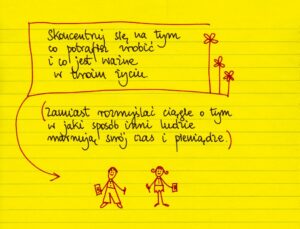 Skoncentruj się na tym
co potrafisz zrobić
i co jest ważne
w twoim życiu.
(zamiast rozmyślać ciągle o tym
w jaki sposób inni ludzie
marnują swój czas i pieniądze.)